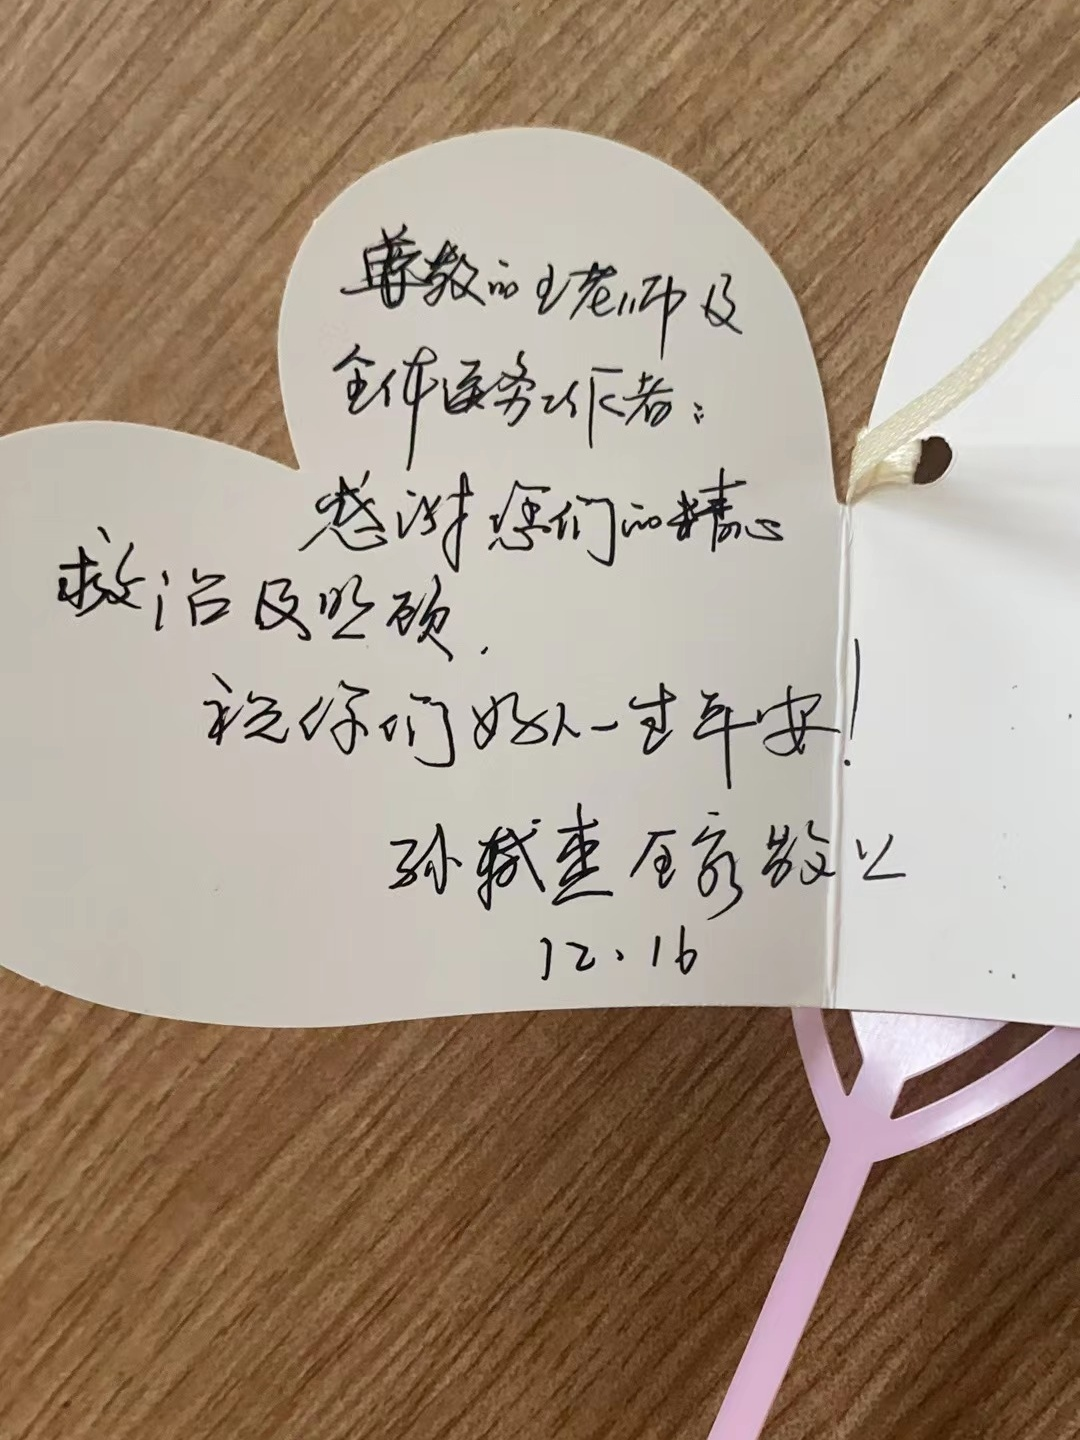 尊敬的王老师及
全体医务工作者:
感谢您们的精心
救治及照顾.
祝你们好人一生平安!
孙 全家敬上
12.16